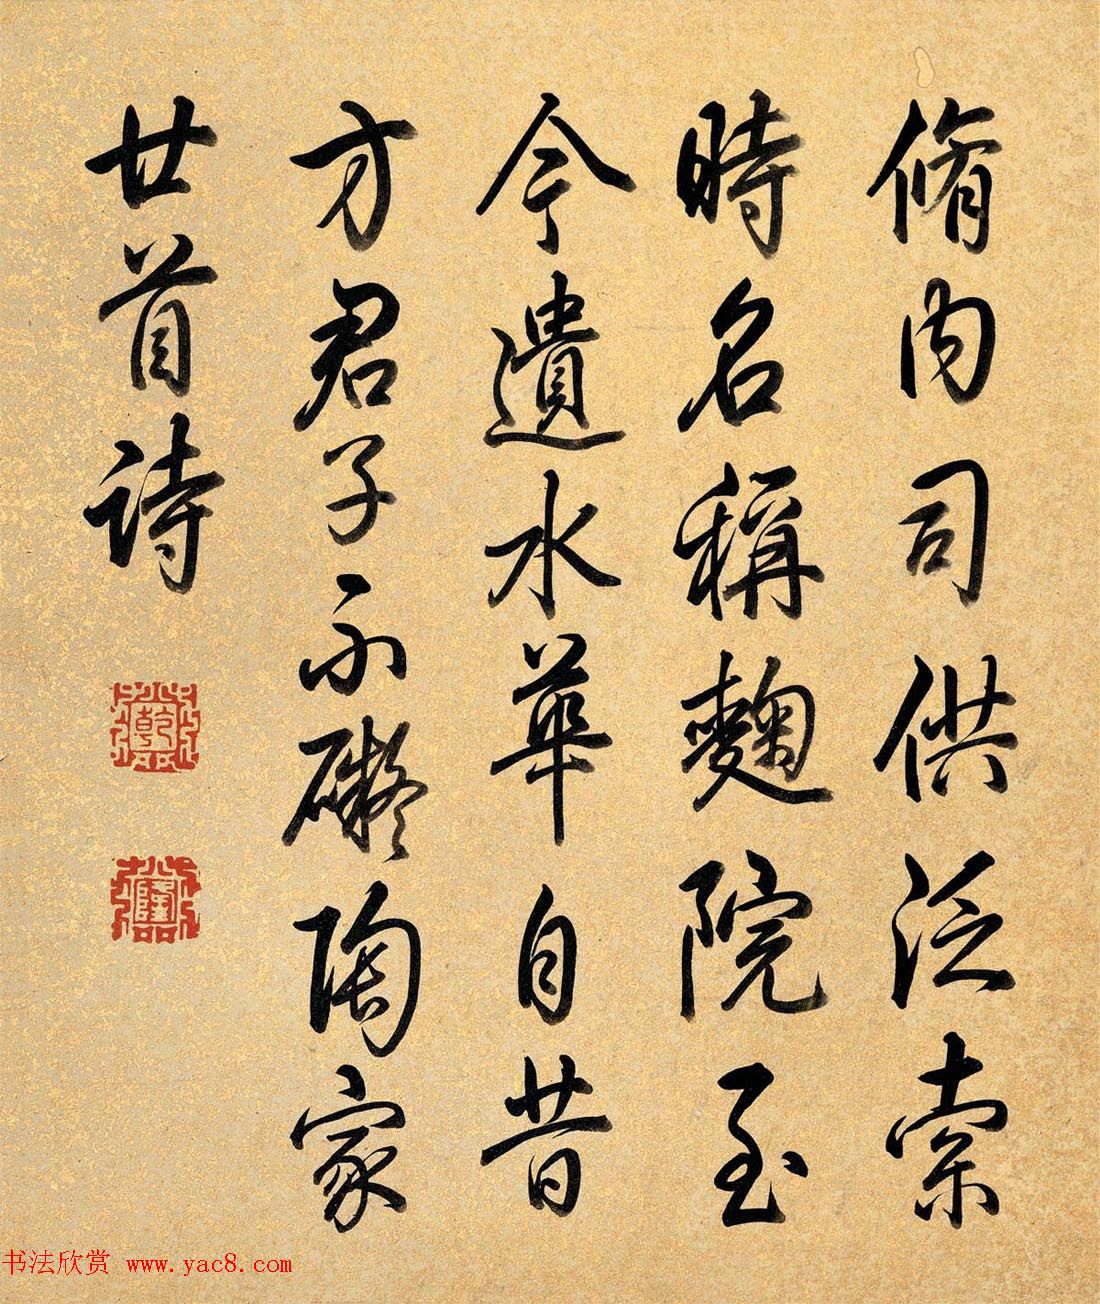 脩内司供泛索
時名稱麴院至
今遺水華自昔
方君子不礙陶家
廿首詩
乾
隆
书法欣赏 www.yac8.com